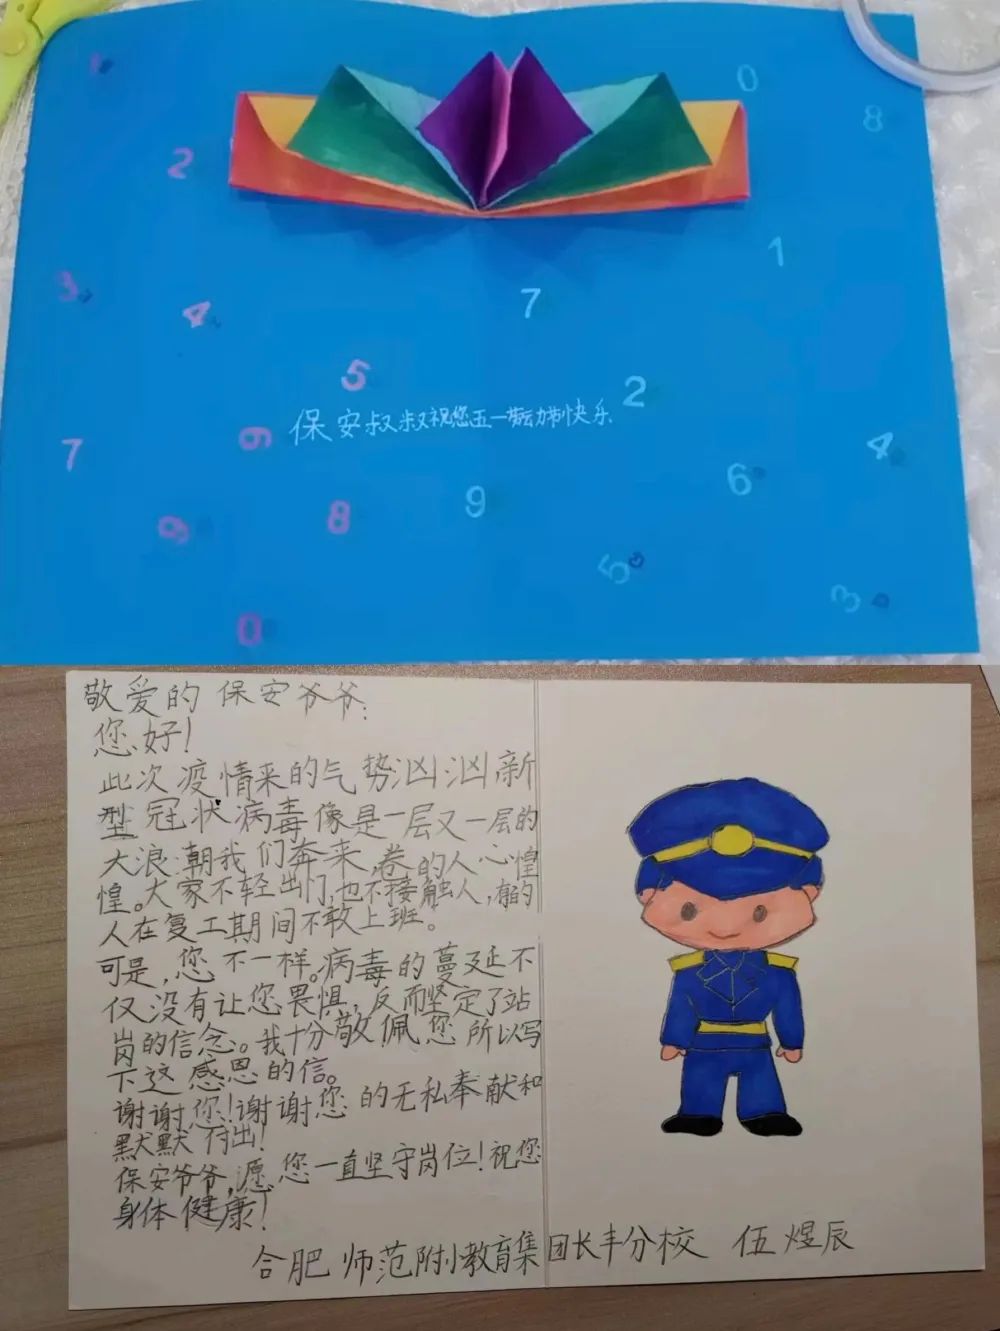 0
8
2
1
3
4
7
5
2
保安叔叔祝您五一劳动节快乐
6
7
4
6
9
8
9
5
3
0
敬爱的保安爷爷:
您好!
此次疫情来的气势汹汹新
型冠状病毒像是一层又一层的
大浪潮我们奔来卷的人心惶
惶。大家不轻出门,也不接触人,有的
人在复工期间不敢上班。
可是,您不一样。病毒的蔓延不
仅没有让您畏惧,反而坚定了站
岗的信念。我十分敬佩您所以写
下这感恩的信。
谢谢您!谢谢您的无私奉献和
默默付出!
保安爷爷,愿您一直坚守岗位!祝您
身体健康!
合肥师范附小教育集团长丰分校 伍煜辰